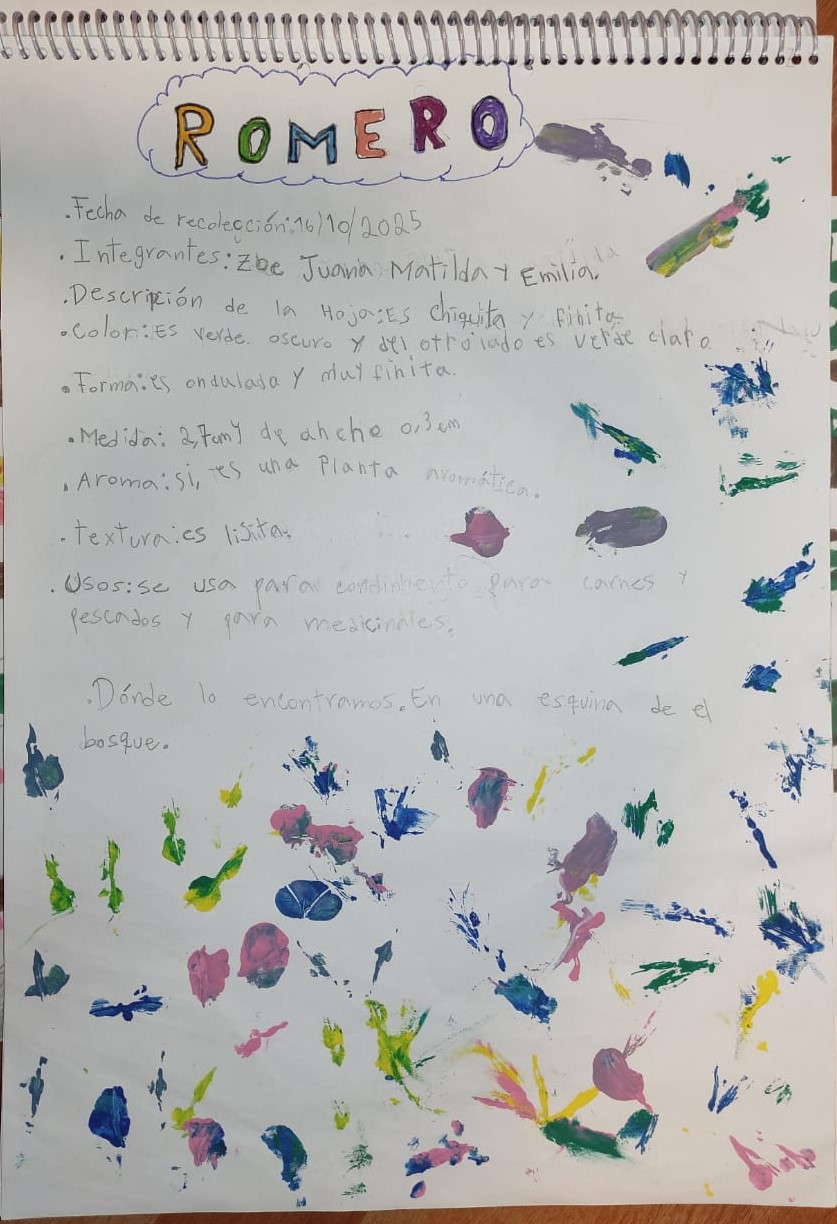 ROMERO
.Fecha de recolección:16/10/2025
.Integrantes: Zoe Juana Matilda y Emilia.
.Descripción de la Hoja:Es chiquita y finita
.Color:Es verde oscuro y del otro lado es verde claro.
.Forma:es ondulada y muy finita.
.Medida: 2,7cm y de ancho 0,3 cm
.Aroma:si, es una Planta aromática.
.textura:es lisita.
.Usos:se usa para condimento para carnes y
pescados y para medicinales.
.Dónde lo encontramos.En una esquina de el
bosque.